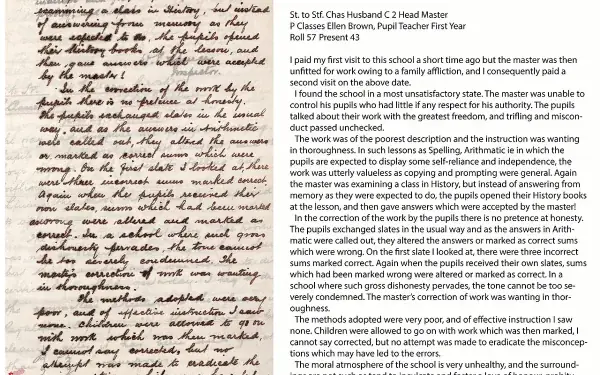 examining a class in History, but instead
of answering from memory as they
were expected to do, the pupils opened
their History books at the lesson, and
then gave answers which were accepted
by the master!
Inspector.
In the correction of the work by the
pupils there is no pretence at honesty.
The pupils exchanged slates in the usual
way, and as the answers in Arithmetic
were called out, they altered the answers
or marked as correct sums which were
wrong. On the first slate I looked at, there
were three incorrect sums marked correct.
Again when the pupils received their
own slates, sums which had been marked
wrong were altered and marked as
correct. In a school where such gross
dishonesty pervades, the tone cannot
be too severely condemned. The
master's correction of work was wanting
in thoroughness.
The methods adopted were very
poor, and of effective instruction I saw
none. Children were allowed to go on
with work which was then marked,
I cannot say corrected, but no
attempt was made to eradicate the
St. to Stf. Chas Husband C 2 Head Master
P Classes Ellen Brown, Pupil Teacher First Year
Roll 57 Present 43
I paid my first visit to this school a short time ago but the master was then
unfitted for work owing to a family affliction, and I consequently paid a
second visit on the above date.
I found the school in a most unsatisfactory state. The master was unable to
control his pupils who had little if any respect for his authority. The pupils
talked about their work with the greatest freedom, and trifling and miscon-
duct passed unchecked.
The work was of the poorest description and the instruction was wanting
in thoroughness. In such lessons as Spelling, Arithmatic ie in which the
pupils are expected to display some self-reliance and independence, the
work was utterly valueless as copying and prompting were general. Again
the master was examining a class in History, but instead of answering from
memory as they were expected to do, the pupils opened their History books
at the lesson, and then gave answers which were accepted by the master!
In the correction of the work by the pupils there is no pretence at honesty.
The pupils exchanged slates in the usual way and as the answers in Arith-
matic were called out, they altered the answers or marked as correct sums
which were wrong. On the first slate I looked at, there were three incorrect
sums marked correct. Again when the pupils received their own slates, sums
which had been marked wrong were altered or marked as correct. In a
school where such gross dishonesty pervades, the tone cannot be too se-
verely condemned. The master's correction of work was wanting in thor-
oughness.
The methods adopted were very poor, and of effective instruction I saw
none. Children were allowed to go on with work which was then marked, I
cannot say corrected, but no attempt was made to eradicate the misconcep-
tions which may have led to the errors.
The moral atmosphere of the school is very unhealthy, and the surround-